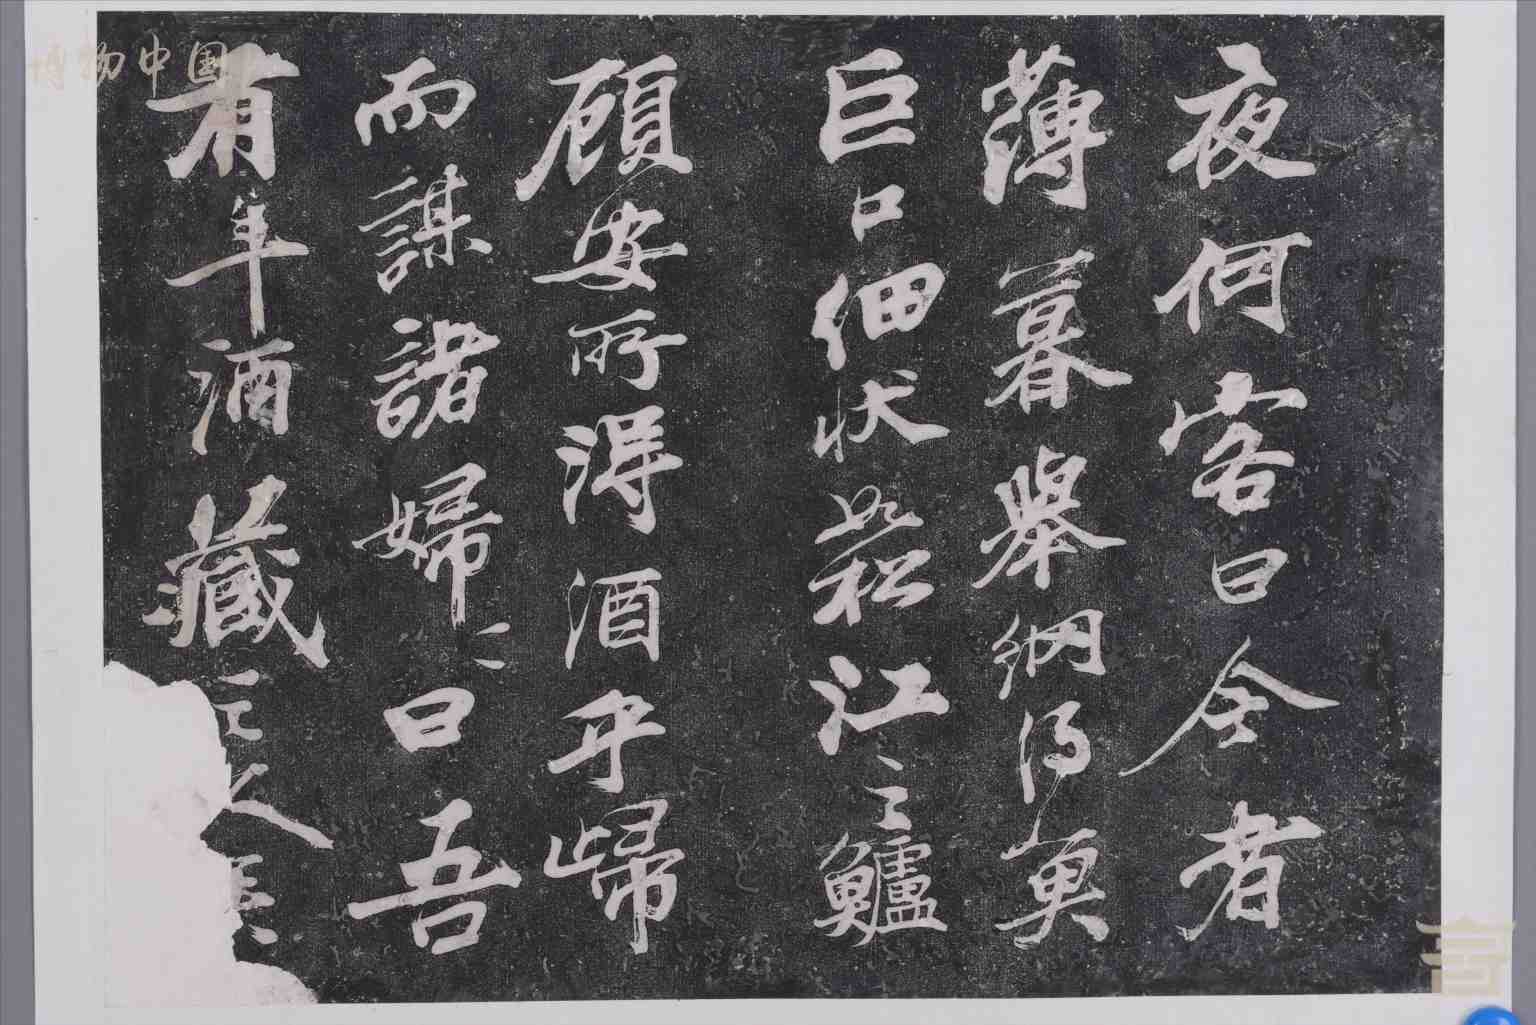 夜何客曰今者
薄暮舉網得魚
巨口細狀如松江之鱸
顧安所得酒乎歸
而謀諸婦〻曰吾
有斗酒藏之久矣
博物中国